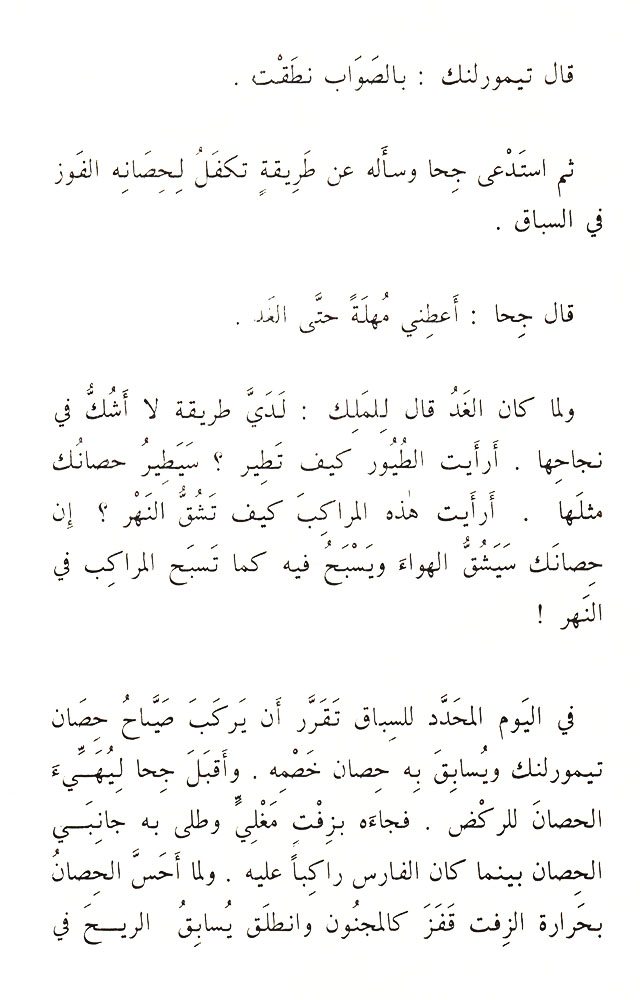 قال تيمورلنك : بالصَوَاب نطَقْت .
ثم استَدْعى جِحا وسأَله عن طَرِيقةٍ تكفَلُ لِحِصَانِه الفَوز
في السباق .
قال جِحا : أَعطِني مُهلَةً حتَّى الغَد .
ولما كان الغَدُ قال لِلمَلِك : لَدَيَّ طريقة لا أَشُكُّ في
نجاحِها . أَرأَيت الطُيُور كيف تَطِير ؟ سَيَطِيرُ حصانُك
مثلَها . أَرأَيت هٰذه المراكِبَ كيف تَشُقُّ النَهْر ؟ إِن
حِصانَك سَيَشُقُّ الهواءَ ويَسْبَحُ فيه كما تَسبَح المراكِب في
النَهر !
في اليَوم المحَدَّد للسِباق تَقَرَّر أَن يَركَبَ صَيَّاحُ حِصَان
تيمورلنك ويُسابِقَ بِه حِصان خَصْمِه . وأَقبَلَ جِحا لِيُهَيِّءَ
الحصانَ للركْض . فجاءَه بزِفْتِ مَغْلِيٍّ وطلى به جانِبَي
الحِصان بينما كان الفارس راكِباً عليه . ولما أَحَسَّ الحِصانُ
بحَرارة الزِفت قَفَزَ كالمجنُون وانطلَق يُسابِقُ الريحَ في